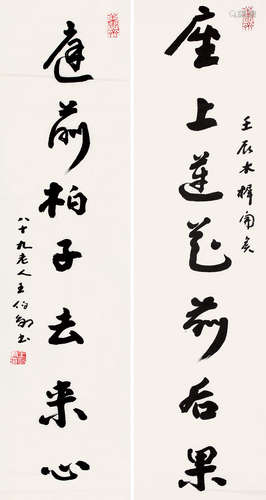 座上蓮花前后果
壬辰木樨開
庭前柏子去来心
八十九老人王伯敏书